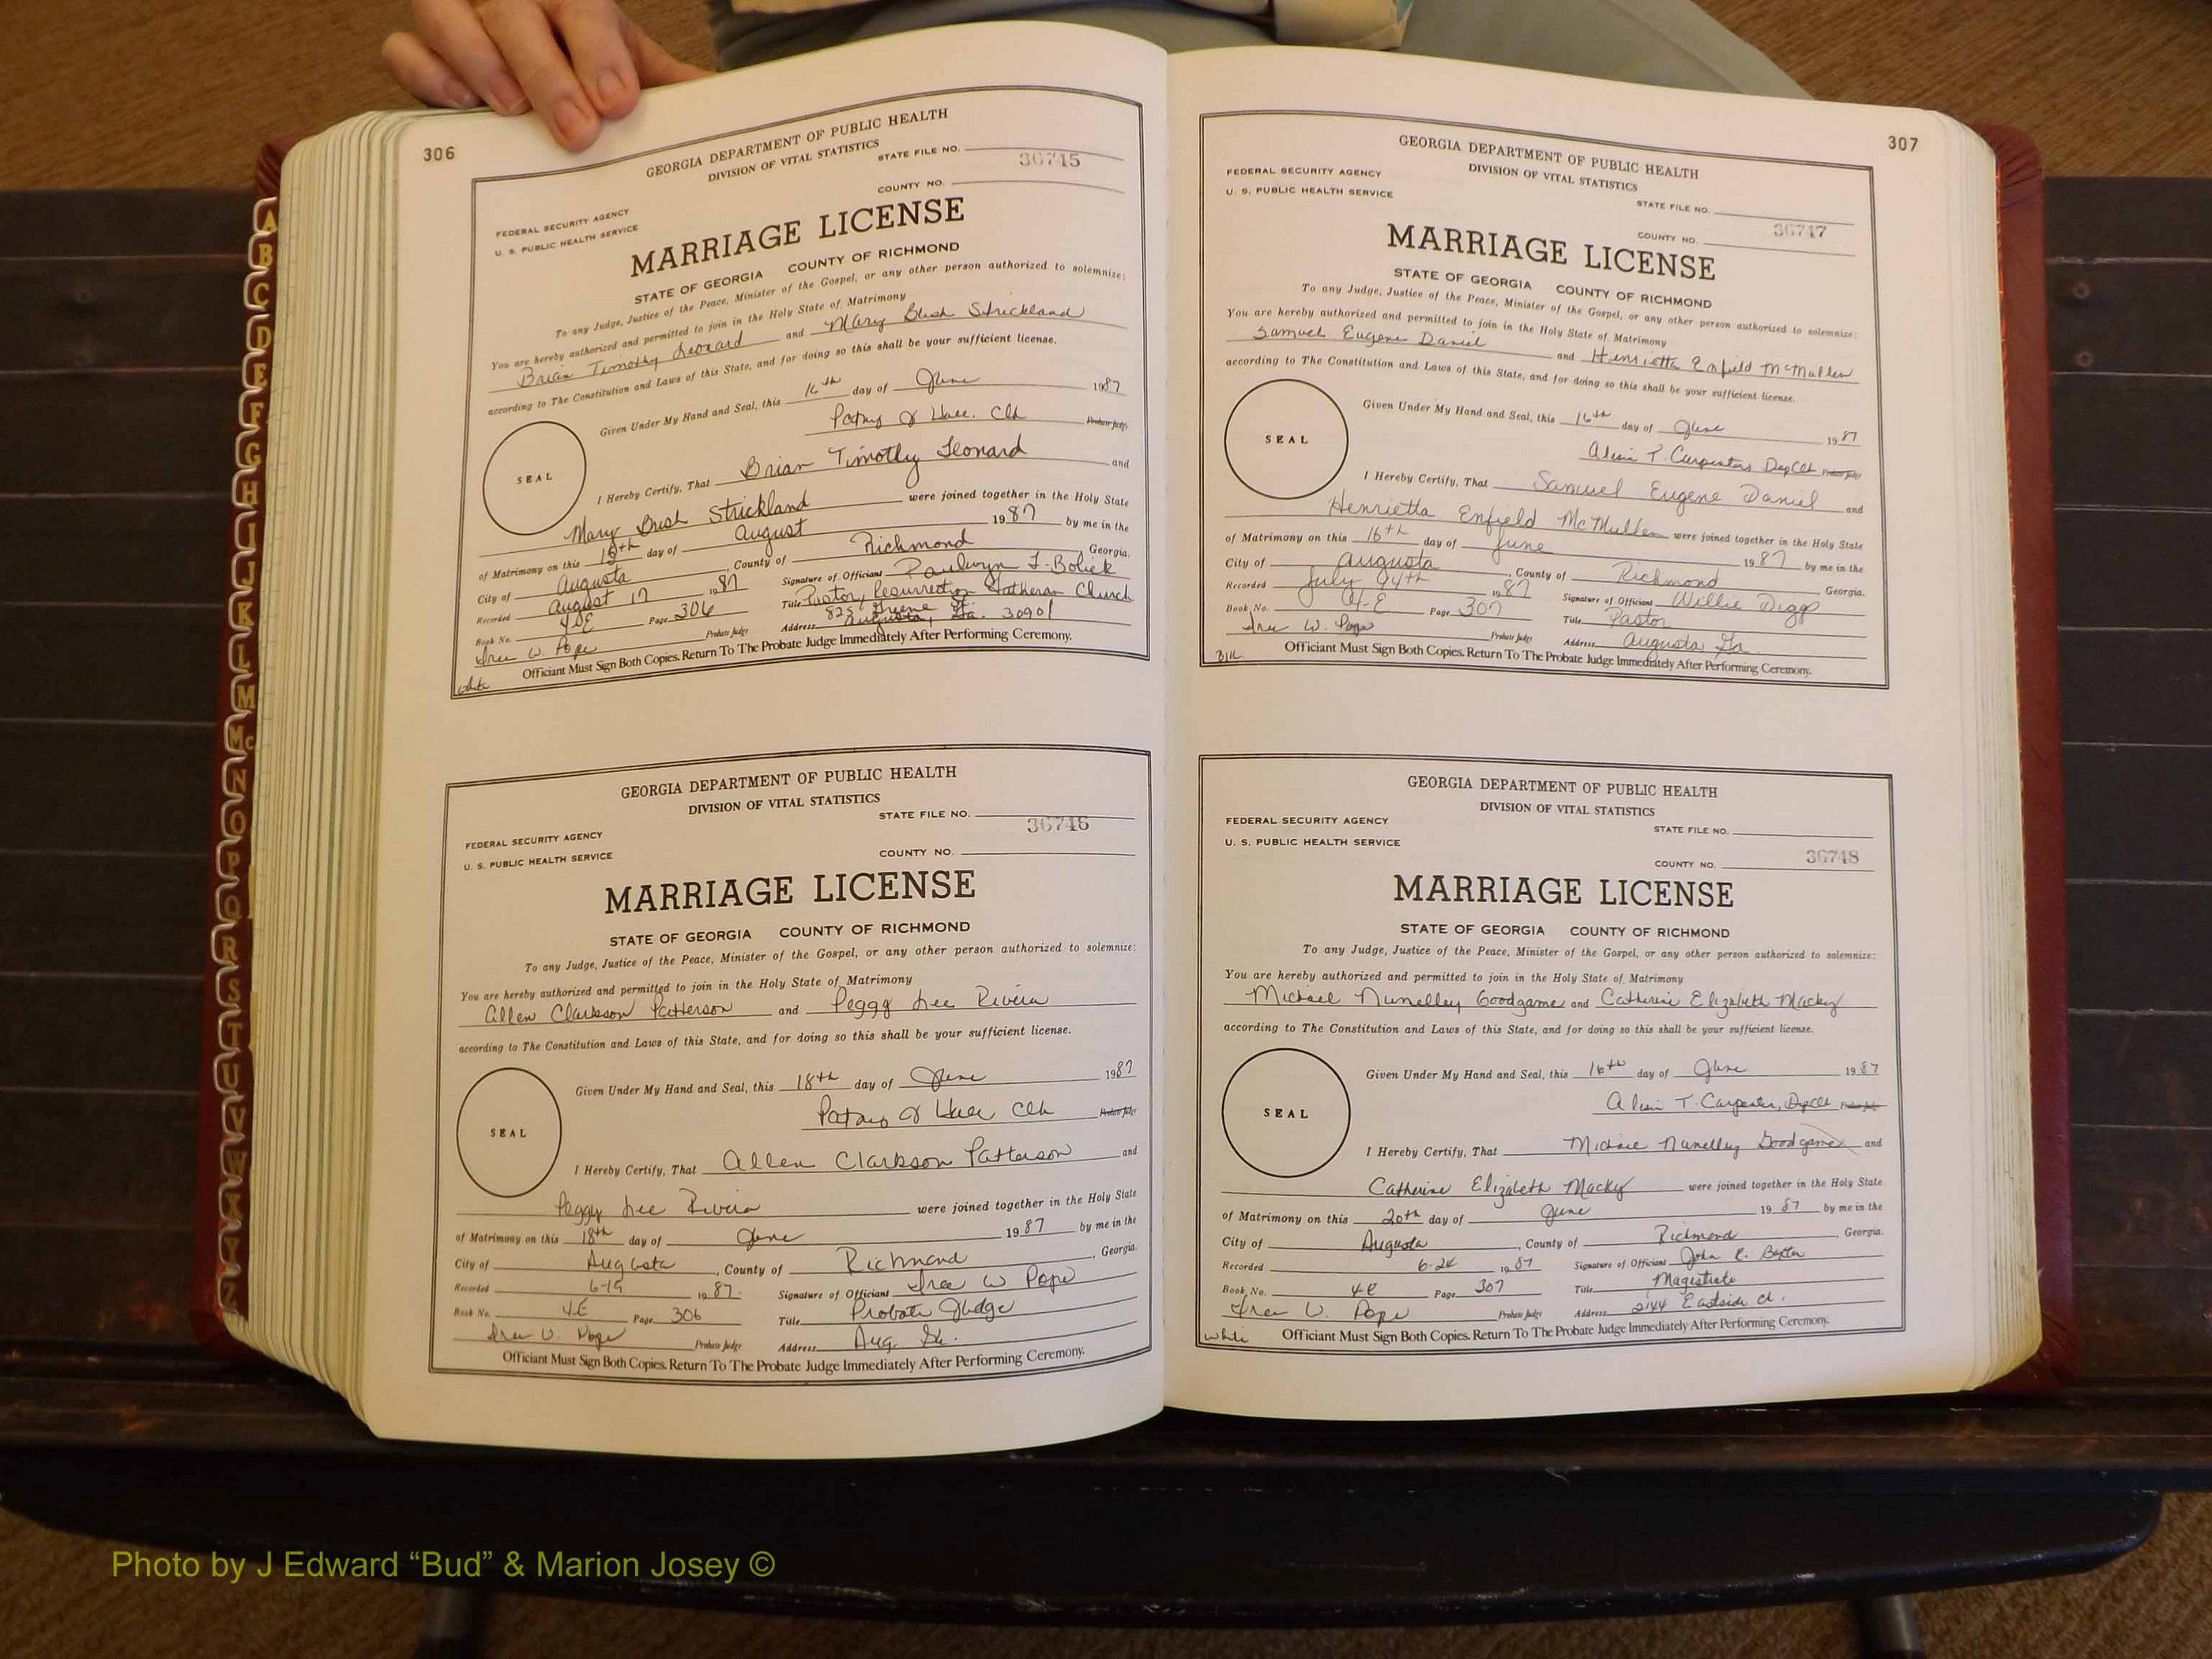 306
GEORGIA DEPARTMENT OF PUBLIC HEALTH
DIVISION OF VITAL STATISTICS
STATE FILE NO. 36745
COUNTY NO.
FEDERAL SECURITY AGENCY
U. S. PUBLIC HEALTH SERVICE
MARRIAGE LICENSE
STATE OF GEORGIA COUNTY OF RICHMOND
To any Judge, Justice of the Peace, Minister of the Gospel, or any other person authorized to solemnize:
You are hereby authorized and permitted to join in the Holy State of Matrimony
Brian Timothy Leonard and Mary Bush Strickland
according to The Constitution and Laws of this State, and for doing so this shall be your sufficient license.
Given Under My Hand and Seal, this 16th day of June 1987
Clk Probate Judge
SEAL
I Hereby Certify, That Brian Timothy Leonard and
Mary Bush Strickland were joined together in the Holy State
of Matrimony on this 15th day of August 1987 by me in the
City of Augusta, County of Richmond, Georgia.
Recorded August 17 1987 Signature of Officiant Paulwyn L. Boliek
Book No. 4-E Page 306 Title Pastor, Resurrection Lutheran Church
825 Greene
W. Pope Probate Judge Address Augusta, Ga. 30901
Officiant Must Sign Both Copies. Return To The Probate Judge Immediately After Performing Ceremony.
white
GEORGIA DEPARTMENT OF PUBLIC HEALTH
DIVISION OF VITAL STATISTICS
STATE FILE NO. 36746
FEDERAL SECURITY AGENCY
U. S. PUBLIC HEALTH SERVICE
COUNTY NO.
MARRIAGE LICENSE
STATE OF GEORGIA COUNTY OF RICHMOND
To any Judge, Justice of the Peace, Minister of the Gospel, or any other person authorized to solemnize:
You are hereby authorized and permitted to join in the Holy State of Matrimony
Allen Clarkson Patterson and Peggy Lee Rivera
according to The Constitution and Laws of this State, and for doing so this shall be your sufficient license.
Given Under My Hand and Seal, this 18th day of June 1987
Clk Probate Judge
SEAL
I Hereby Certify, That Allen Clarkson Patterson and
Peggy Lee Rivera were joined together in the Holy State
of Matrimony on this 18th day of June 1987 by me in the
City of Augusta, County of Richmond, Georgia.
Recorded 6-19 1987. Signature of Officiant W Pope
Book No. 4-E Page 306 Title Probate Judge
W. Pope Probate Judge Address Aug. Ga.
Officiant Must Sign Both Copies. Return To The Probate Judge Immediately After Performing Ceremony.
307
GEORGIA DEPARTMENT OF PUBLIC HEALTH
DIVISION OF VITAL STATISTICS
FEDERAL SECURITY AGENCY
U. S. PUBLIC HEALTH SERVICE
STATE FILE NO.
COUNTY NO. 36747
MARRIAGE LICENSE
STATE OF GEORGIA COUNTY OF RICHMOND
To any Judge, Justice of the Peace, Minister of the Gospel, or any other person authorized to solemnize:
You are hereby authorized and permitted to join in the Holy State of Matrimony
Samuel Eugene Daniel and Henrietta Enfield McMullen
according to The Constitution and Laws of this State, and for doing so this shall be your sufficient license.
Given Under My Hand and Seal, this 16th day of June 1987
T. Carpenter, Dep Clk Probate Judge
SEAL
I Hereby Certify, That Samuel Eugene Daniel and
Henrietta Enfield McMullen were joined together in the Holy State
of Matrimony on this 16th day of June 1987 by me in the
City of Augusta, County of Richmond, Georgia.
Recorded July 1987 Signature of Officiant Willie Diggs
Book No. 4-E Page 307 Title Pastor
W. Pope Probate Judge Address Augusta Ga.
Officiant Must Sign Both Copies. Return To The Probate Judge Immediately After Performing Ceremony.
GEORGIA DEPARTMENT OF PUBLIC HEALTH
DIVISION OF VITAL STATISTICS
FEDERAL SECURITY AGENCY
U. S. PUBLIC HEALTH SERVICE
STATE FILE NO.
COUNTY NO. 36748
MARRIAGE LICENSE
STATE OF GEORGIA COUNTY OF RICHMOND
To any Judge, Justice of the Peace, Minister of the Gospel, or any other person authorized to solemnize:
You are hereby authorized and permitted to join in the Holy State of Matrimony
Michael Nunelley Goodgame and Catherine Elizabeth Macky
according to The Constitution and Laws of this State, and for doing so this shall be your sufficient license.
Given Under My Hand and Seal, this 16th day of June 1987
T. Carpenter, Dep Clk Probate Judge
SEAL
I Hereby Certify, That Michael Nunelley Goodgame and
Catherine Elizabeth Macky were joined together in the Holy State
of Matrimony on this 20th day of June 1987 by me in the
City of Augusta, County of Richmond, Georgia.
Recorded 6-24 1987 Signature of Officiant John R. Baxter
Book No. 4-E Page 307 Title Magistrate
W. Pope Probate Judge Address 2144 Eastside Ct.
white Officiant Must Sign Both Copies. Return To The Probate Judge Immediately After Performing Ceremony.
A
B
C
D
E
F
G
H
I
J
K
L
M
Mc
N
O
P
Q
R
S
T
U
V
W
X
Y
Z
Photo by J Edward “Bud” & Marion Josey ©